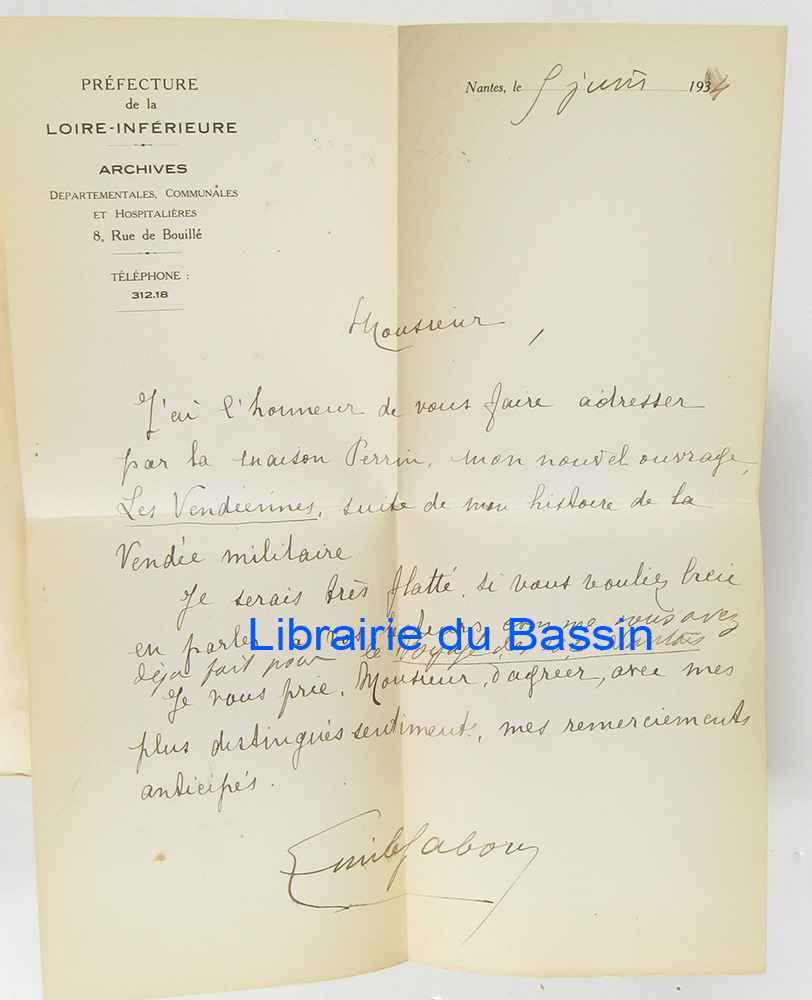 PRÉFECTURE
de la
LOIRE-INFÉRIEURE
ARCHIVES
DÉPARTEMENTALES, COMMUNALES
ET HOSPITALIÈRES
8, Rue de Bouillé
TÉLÉPHONE :
312.18
Nantes, le 5 juin 1934
Monsieur,
J'ai l'honneur de vous faire adresser
par la maison Perrin, mon nouvel ouvrage,
Les Vendéennes, suite de mon histoire de la
Vendée militaire.
Je serais très flatté, si vous vouliez bien
en parler à vos lecteurs, comme vous avez
déjà fait pour le Voyage des Nantais
Je vous prie, Monsieur, d'agréer, avec mes
plus distingués sentiments, mes remerciements
anticipés.
Emile Gabory
Librairie du Bassin